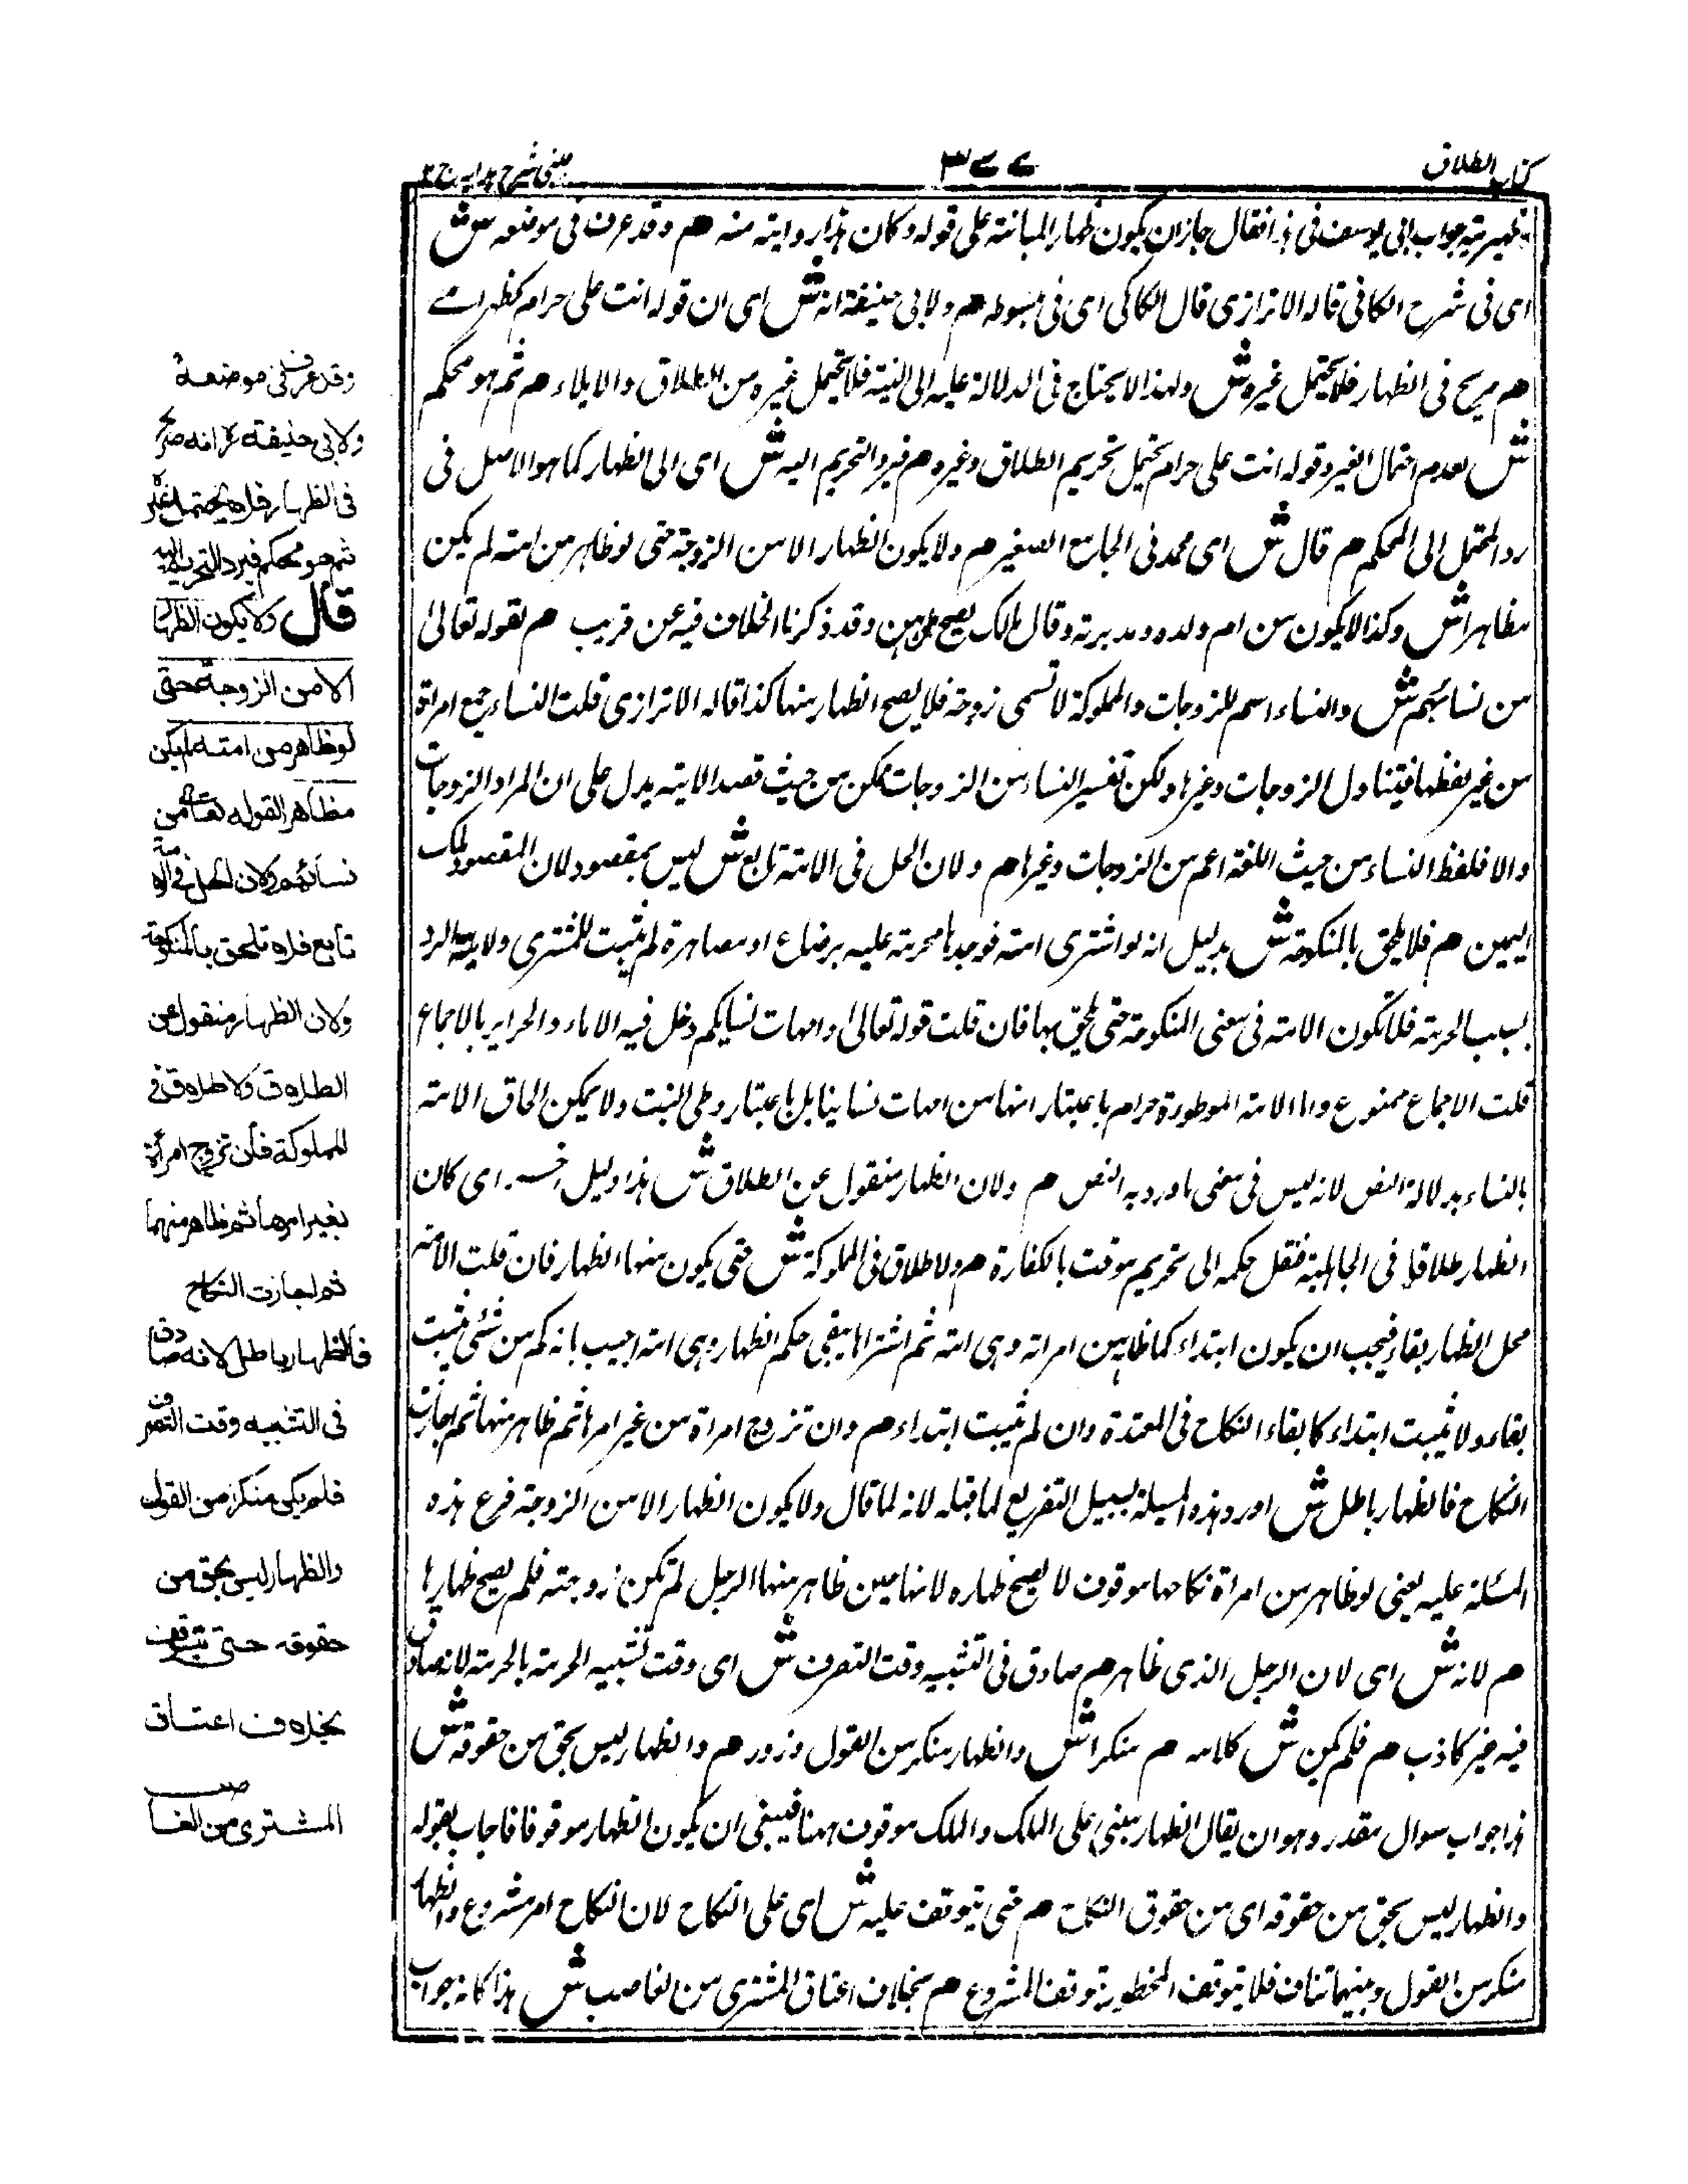 كتاب الطلاق
٣٧٧
عینی شرح هدایہ ج ٢
جواب ابي يوسف في هذا فقال جاز ان يكون ظهار المبانة على قوله وكان هذا رواية منه هم وقد عرف في موضعه ش
اي في شرح الكافي قاله الاترازي قال الكاكي اي في مبسوطه هم ولابي حنيفة انه ش اي ان قوله انت علي حرام كظهر امي
هم صريح في الظهار فلا يحتمل غيره ش ولهذا لا يحتاج في الدلالة عليه الى النية فلا يحتمل غيره من الطلاق والايلاء هم ثم هو محكم
ش لعدم احتمال الغير وقوله انت علي حرام يحتمل تحريم الطلاق وغيره هم فيرد التحريم اليه ش اي الى الظهار كما هو الاصل في
رد المحتمل الى المحكم هم قال ش اي محمد في الجامع الصغير هم ولا يكون الظهار الا من الزوجة حتى لو ظاهر من امته لم يكن
مظاهرا ش وكذا لا يكون من ام ولده ومدبرته وقال مالك يصح وقد ذكرنا الخلاف فيه عن قريب هم لقوله تعالى
من نسائهم ش والنساء اسم للزوجات والمملوكة لا تسمى زوجة فلا يصح الظهار منها كذا قاله الاترازي قلت النساء جمع امراة
من غير لفظها فيتناول الزوجات وغيرها ولكن تفسير النساء من الزوجات يمكن من حيث قصد الاية يدل على ان المراد الزوجات
والا فلفظ النساء من حيث اللغة اعم من الزوجات وغيرها هم ولان الحل في الامة تابع ش ليس بمقصود لان المقصود ملك
اليمين هم فلا يلحق بالمنكوحة ش بدليل انه لو اشترى امة فوجدها محرمة عليه برضاع او مصاهرة لم يثبت للمشتري ولاية الرد
بسبب الحرمة فلا تكون الامة في معنى المنكوحة حتى يلحق بها فان قلت قوله تعالى وامهات نسايكم دخل فيه الاماء والحراير بالاجماع
قلت الاجماع ممنوع واما الامة الموطوءة حرام باعتبار انها من امهات نساينا بل باعتبار وطي البنت ولا يمكن الحاق الامة
بالنساء بدلالة النص لانه ليس في معنى ما ورد به النص هم ولان الظهار منقول عن الطلاق ش هذا دليل اخر اي كان
الظهار طلاقا في الجاهلية فنقل حكمه الى تحريم موقت بالكفارة هم ولا طلاق في المملوكة ش حتى يكون منها الظهار فان قلت الامة
محل الظهار بقاء فيجب ان يكون ابتداء كما ظاهر من امراته وهي امة ثم اشتراها يبقى حكم الظهار وهي امة اجيب بانه كم من شئي يثبت
بقاء ولا يثبت ابتداء كابقاء النكاح في المعتدة وان لم يثبت ابتداء هم وان تزوج امراة من غير امرها ثم ظاهر منها ثم اجازت
النكاح فالظهار باطل ش اورد هذه المسيلة بسبيل التفريع لما قبله لانه لما قال ولا يكون الظهار الا من الزوجة فرع هذه
المسئلة عليه يعني لو ظاهر من امراة نكاحها موقوف لا يصح ظهاره لانها حين ظاهر منها الرجل لم تكن زوجته فلم يصح ظهارها
هم لانه ش اي لان الرجل الذي ظاهر هم صادق في التشبيه وقت التصرف ش اي وقت تشبيه الحرمة بالحرمة لانه صادق
فيه غير كاذب هم فلم يكن ش كلامه هم منكرا ش والظهار منكر من القول وزور هم والظهار ليس بحق من حقوقه ش
هذا جواب سوال مقدر وهو ان يقال الظهار مبني على الملك والملك موقوف ههنا فينبغي ان يكون الظهار موقوفا فاجاب بقوله
والظهار ليس بحق من حقوقه اي من حقوق النكاح هم حتى يتوقف عليه ش اي على النكاح لان النكاح امر مشروع والظهار
منكر من القول وبينهما تناف فلا يتوقف المحظور توقف المشروع هم بخلاف اعتاق المشتري من الغاصب ش هذا كانه جواب
وقد عرف في موضعه
ولابي حنيفة رح انه صريح
في الظهار فلا يحتمل غيره
ثم هو محكم فيرد التحريم اليه
قال ولا يكون الظهار
الا من الزوجة حتى
لو ظاهر من امته لم يكن
مظاهرا لقوله تعالى من
نسائهم ولان الحل في الامة
تابع فلا تلحق بالمنكوحة
ولان الظهار منقول عن
الطلاق ولا طلاق في
المملوكة فأن تزوج امرأة
بغير امرها ثم ظاهر منها
ثم اجازت النكاح
فالظهار باطل لانه صادق
في التشبيه وقت التصرف
فلم يكن منكرا من القول
والظهار ليس بحق من
حقوقه حتى يتوقف
بخلاف اعتاق
المشتري من الغاصب